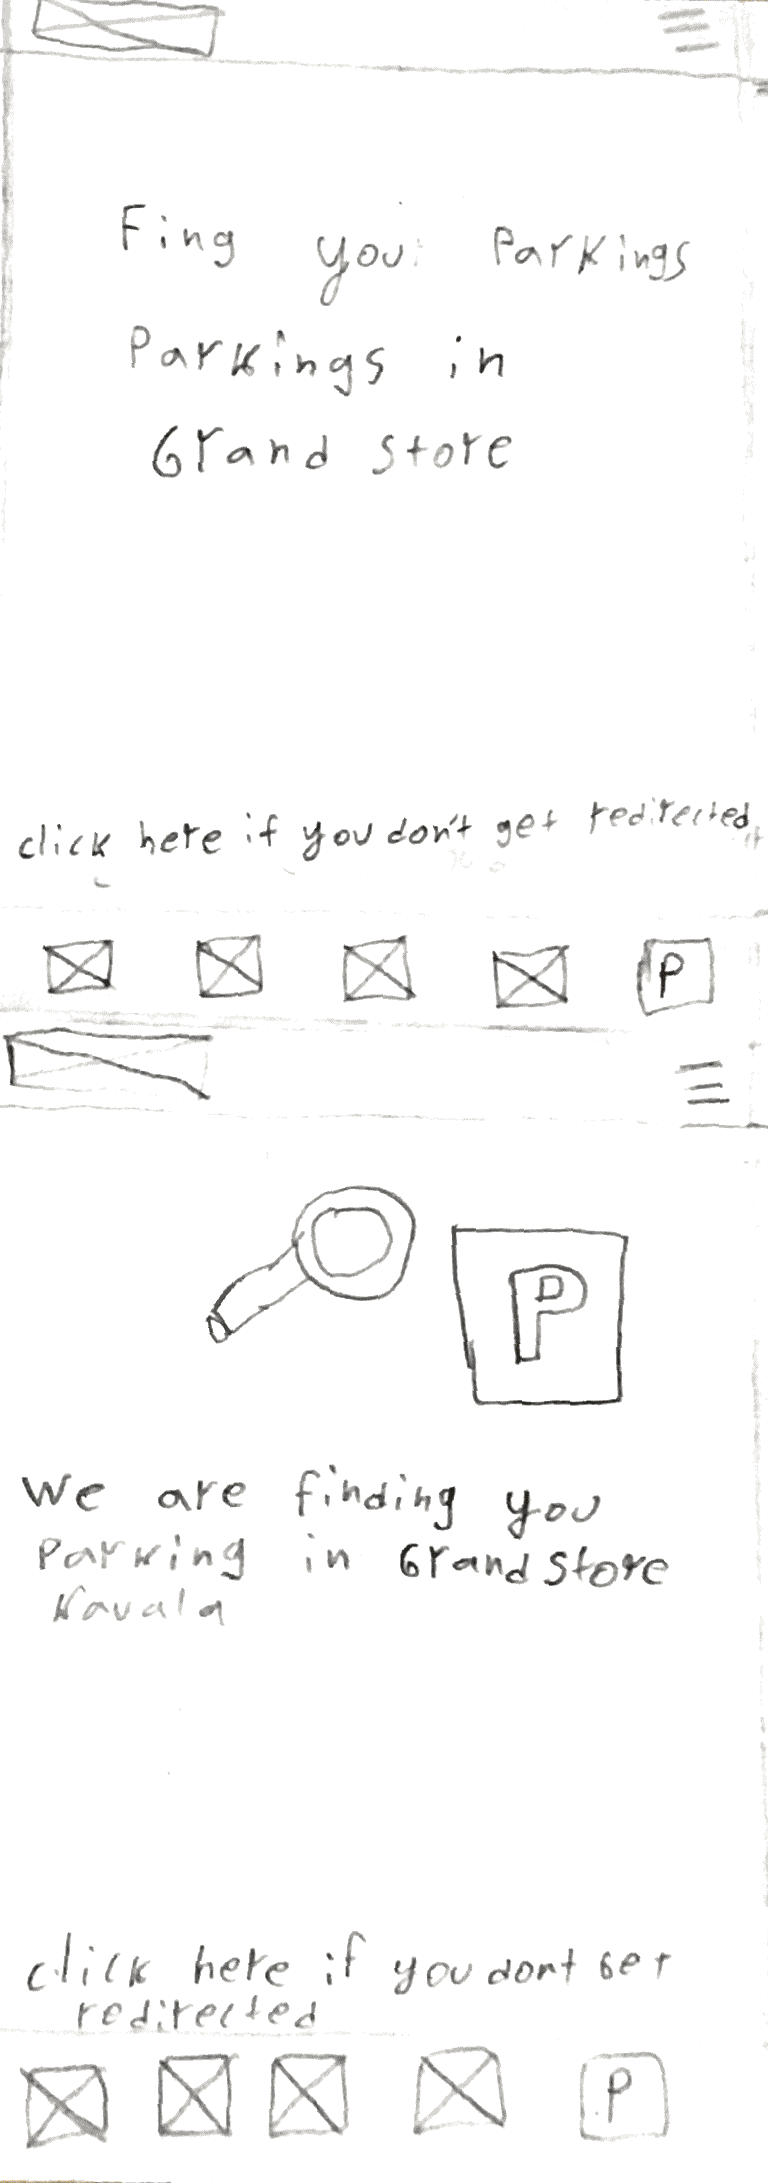 Fing you Parkings
Parkings in
Grand store
click here if you don't get redirected
P
P
We are finding you
Parking in Grand store
Kavala
click here if you dont get
redirected
P